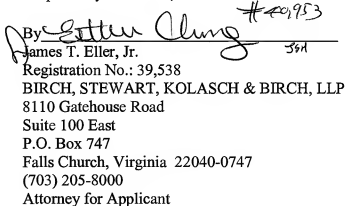 #40,953
By Esther Chung
James T. Eller, Jr. JSH
Registration No.: 39,538
BIRCH, STEWART, KOLASCH & BIRCH, LLP
8110 Gatehouse Road
Suite 100 East
P.O. Box 747
Falls Church, Virginia 22040-0747
(703) 205-8000
Attorney for Applicant